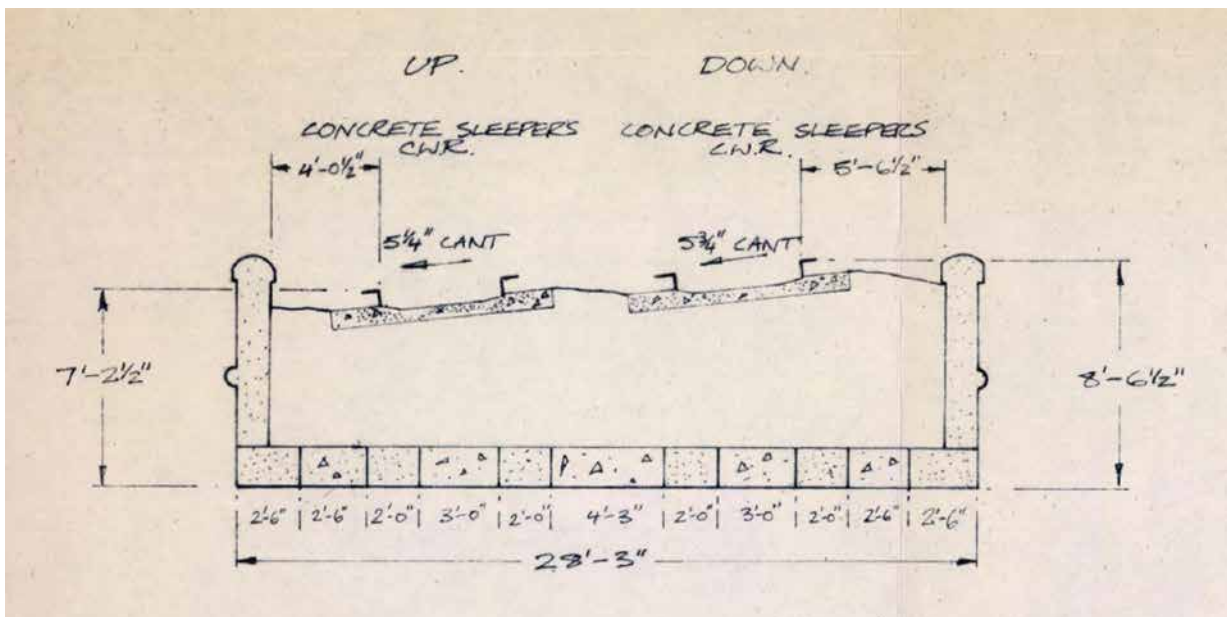 UP. DOWN.
CONCRETE SLEEPERS CONCRETE SLEEPERS
C.W.R. C.W.R.
4'-0½" 5'-6½"
5¼" CANT 5¾" CANT
7'-2½" 8'-6½"
2'-6" 2'-6" 2'-0" 3'-0" 2'-0" 4'-3" 2'-0" 3'-0" 2'-0" 2'-6" 2'-6"
28'-3"